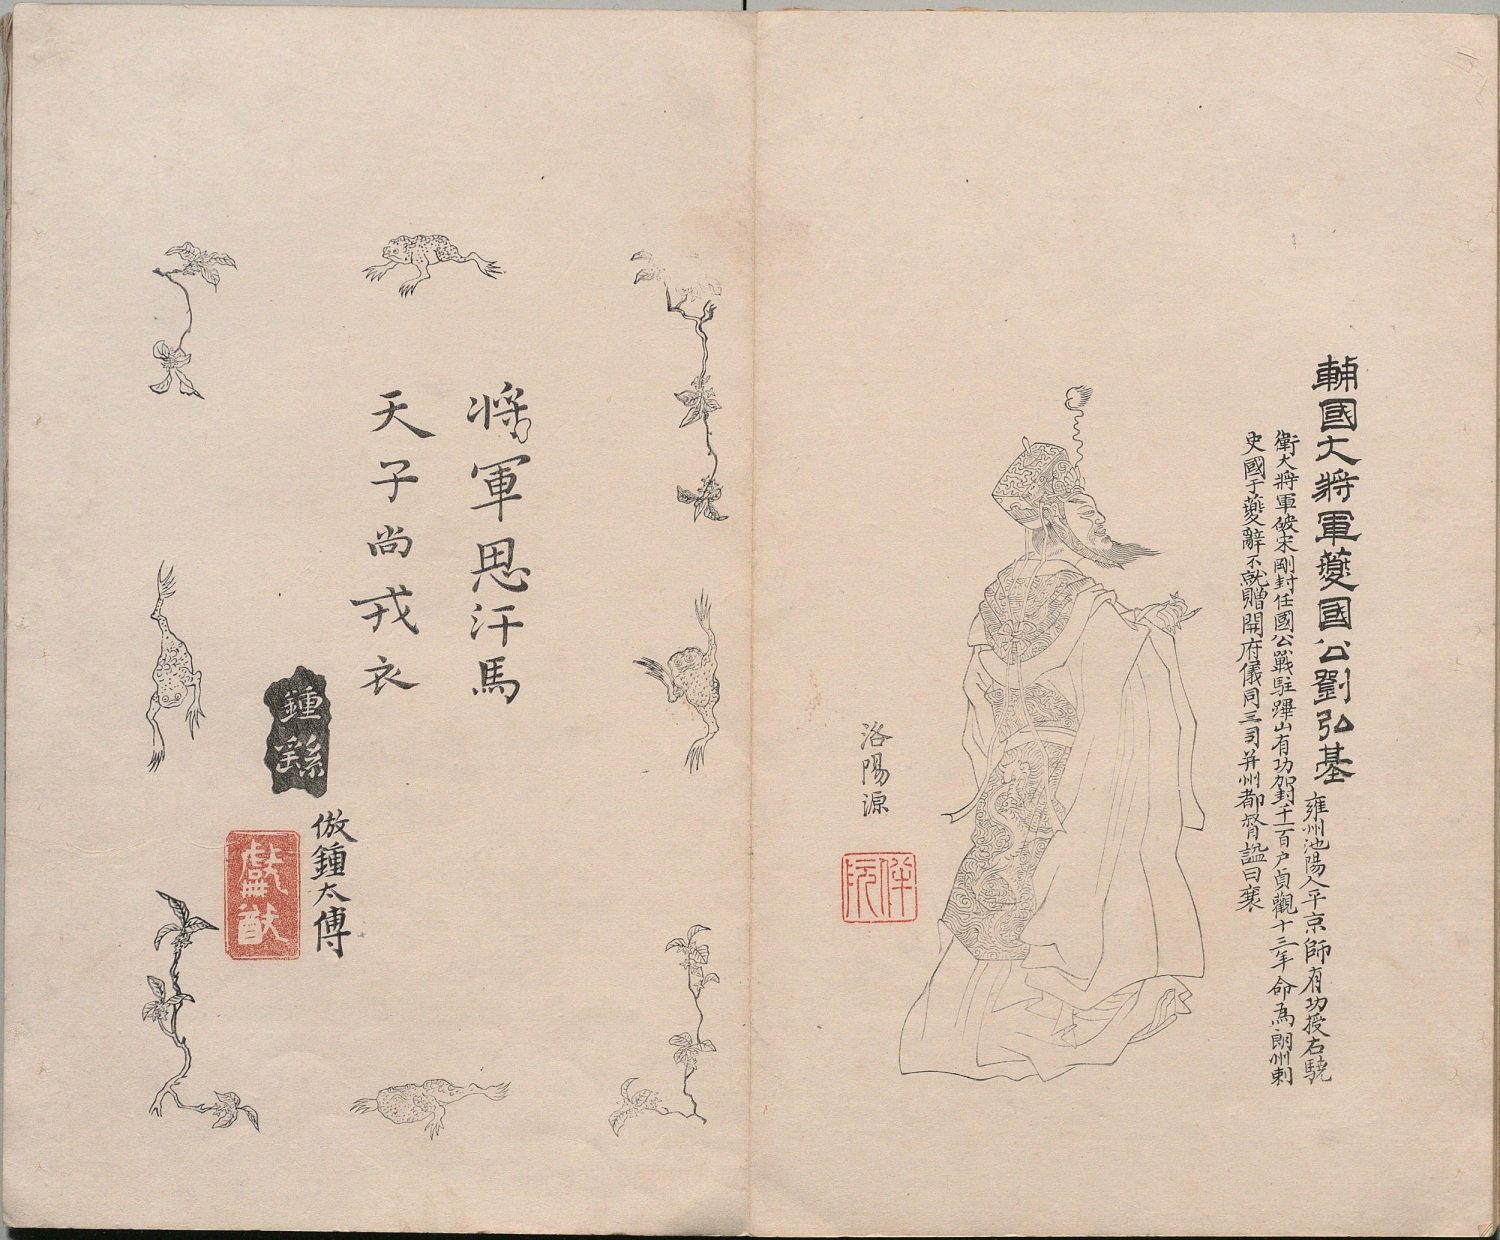 輔國大將軍夔國公劉弘基
雍州池陽人平京師有功授右驍
衛大將軍破宋剛封任國公戰駐蹕山有功加封千一百戶貞觀十三年命為朗州刺
史國于夔辭不就贈開府儀同三司并州都督謚曰襄
洛陽源
將軍思汗馬
天子尚戎衣
倣鍾太傅